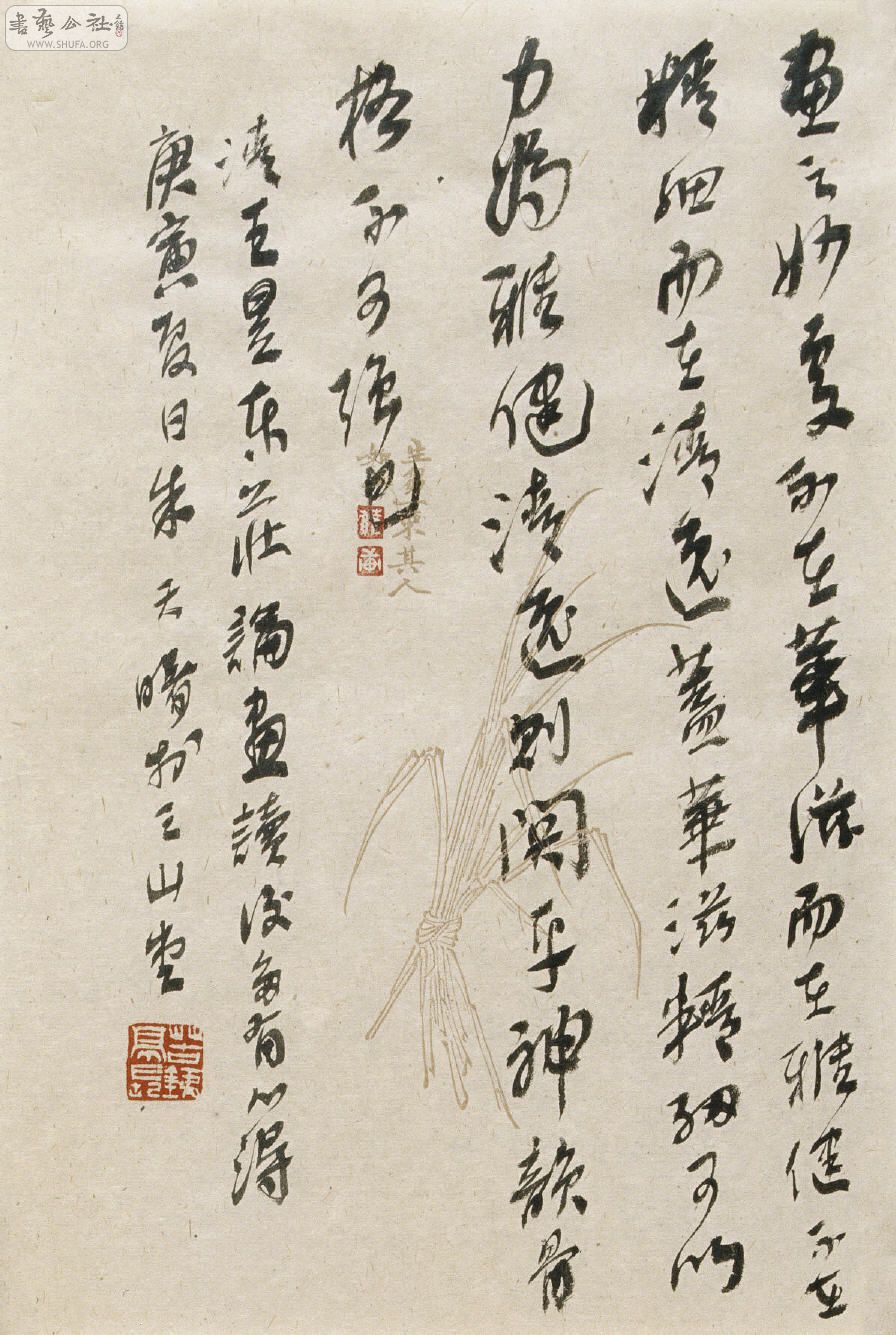 書藝公社
WWW.SHUFA.ORG
畫之妙處不在華滋而在雅健不在
精細而在清逸蓋華滋精細可以
力為雅健清逸則關乎神韻骨
格不可強也
清王昱東莊論畫讀後多有心得
庚寅夏日朱天曙於三山堂
生芻一束其人
如